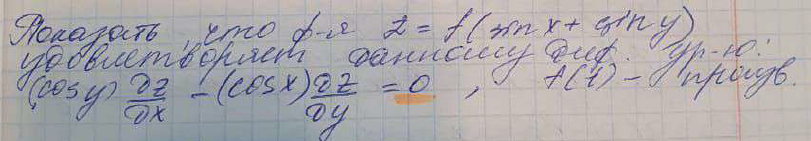 Показать, что ф-я z = f(sin x + sin y)
удовлетворяет данному диф. ур-ю:
(cos y) ∂z/∂x - (cos x) ∂z/∂y = 0 , f(t) - произв.